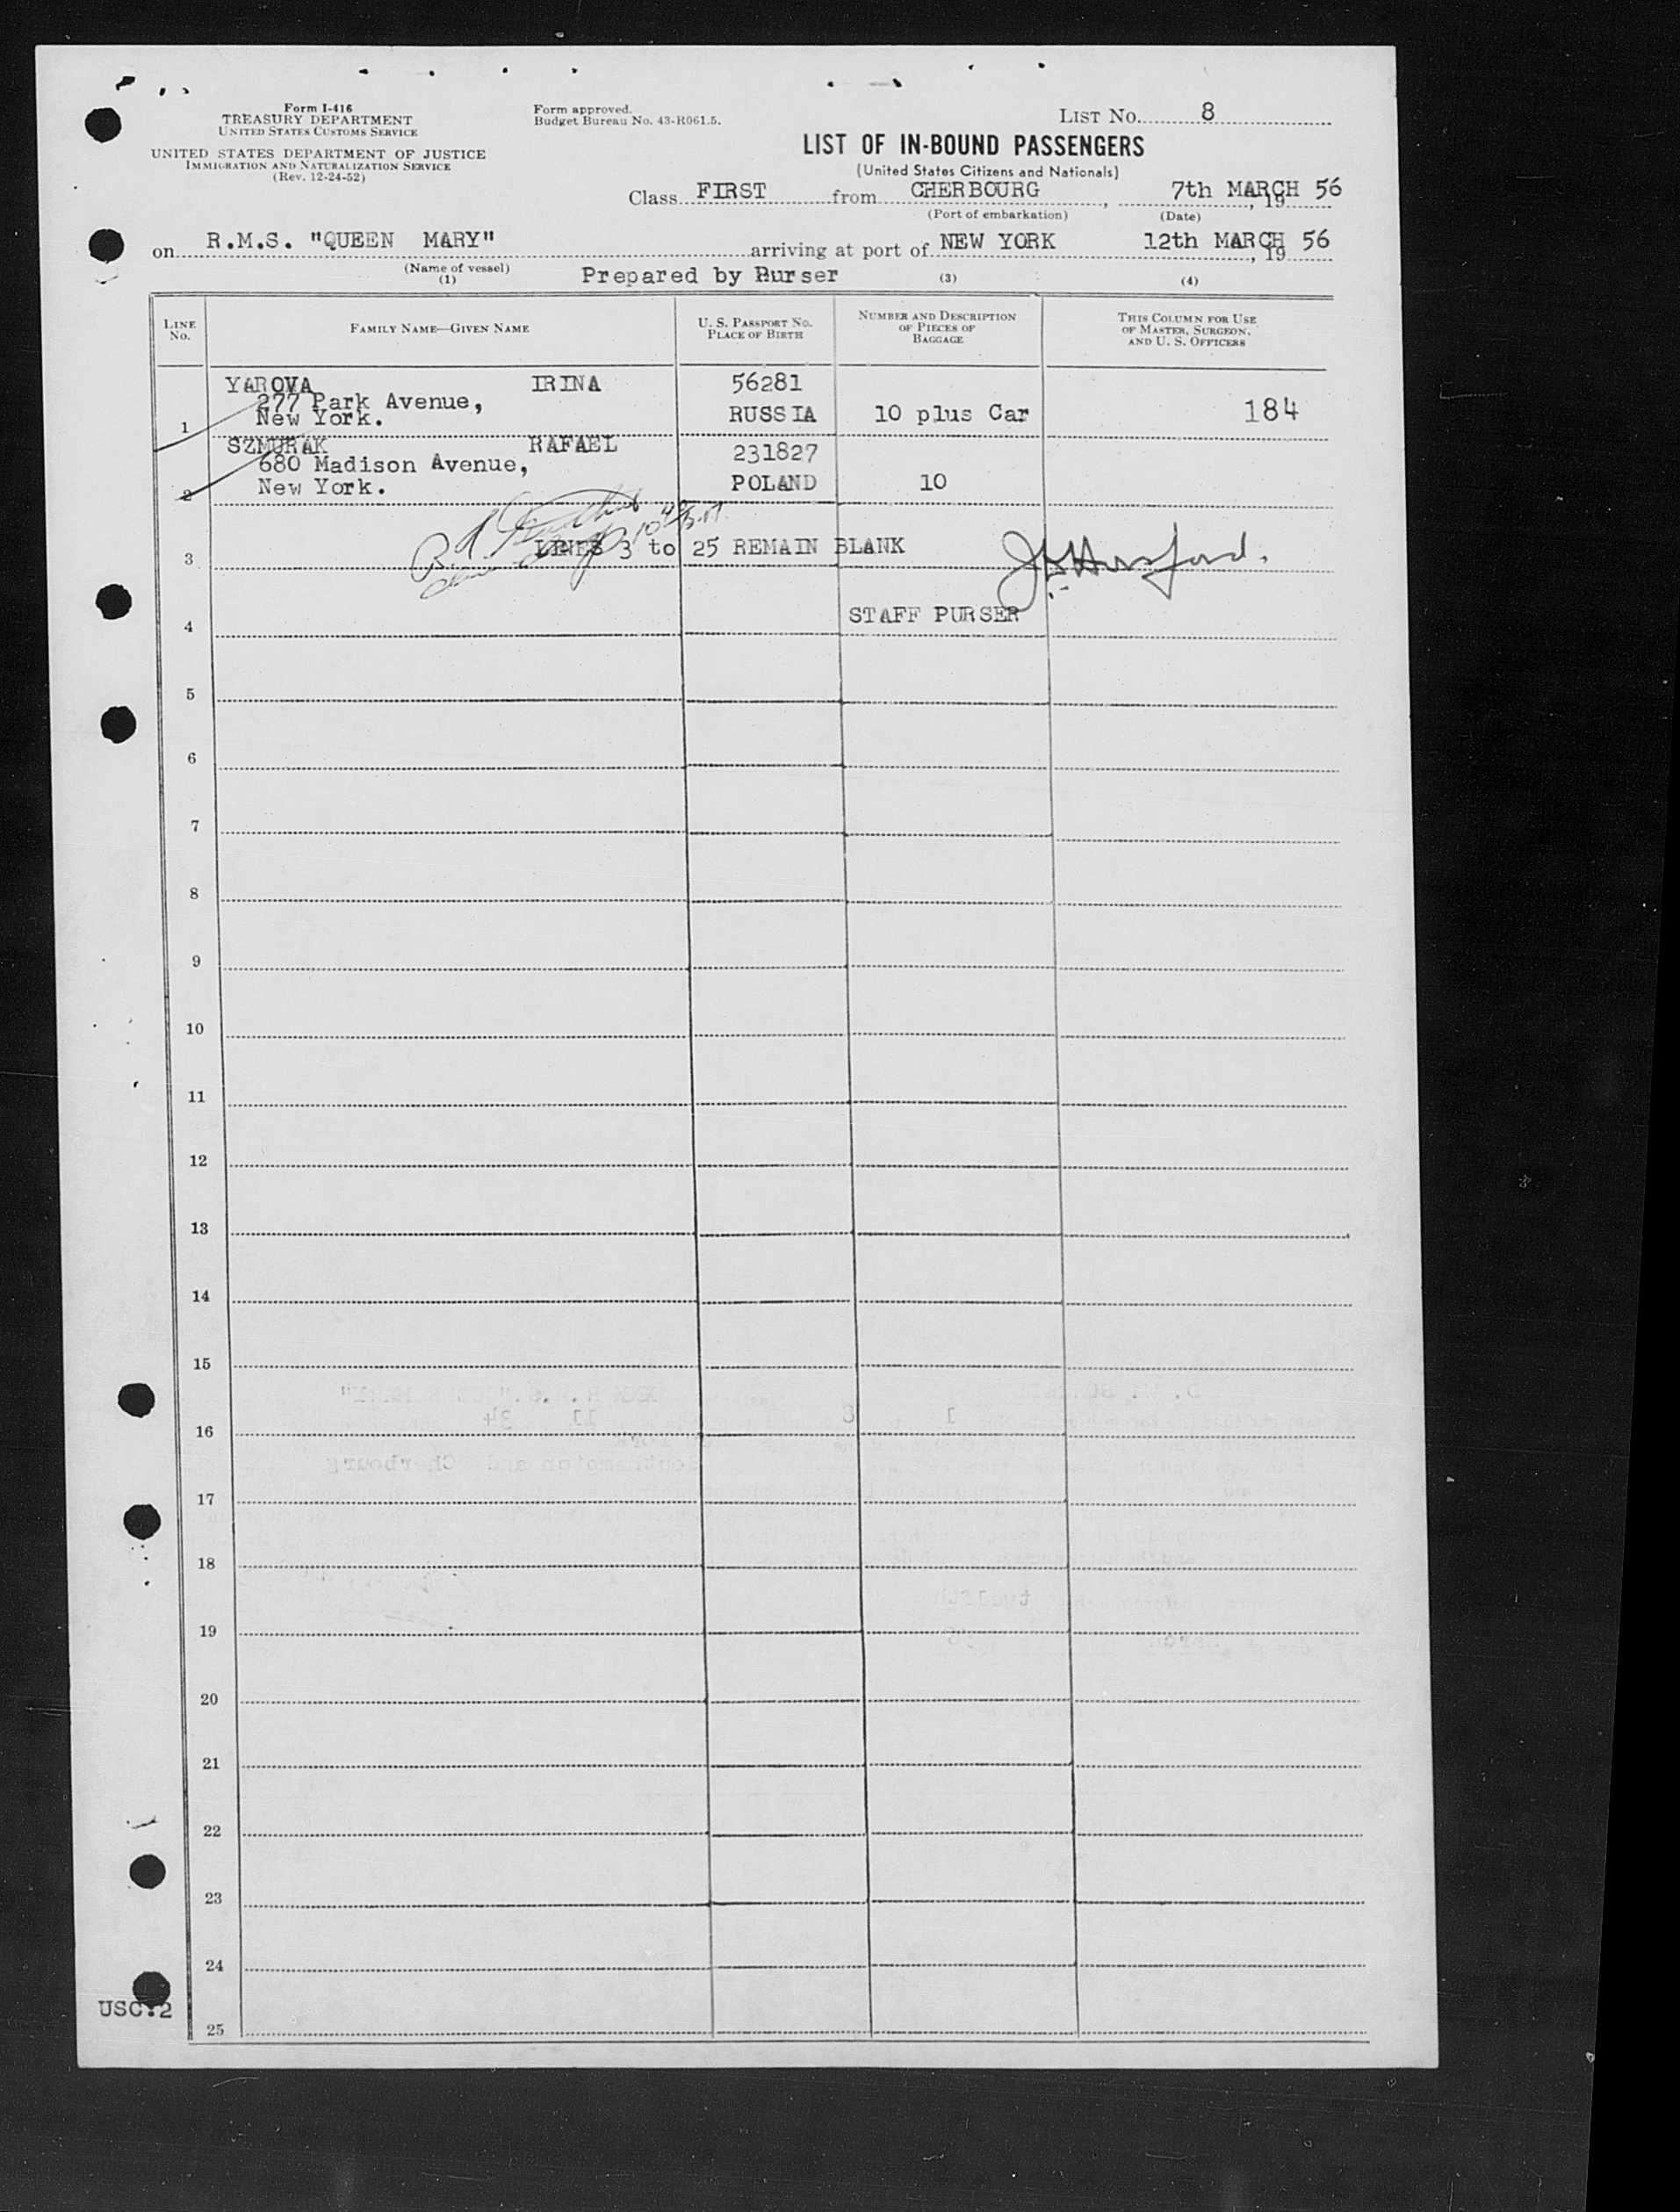 Form I-416
TREASURY DEPARTMENT
UNITED STATES CUSTOMS SERVICE
UNITED STATES DEPARTMENT OF JUSTICE
IMMIGRATION AND NATURALIZATION SERVICE
(Rev. 12-24-52)
Form approved.
Budget Bureau No. 43-R061.5.
LIST No. 8
LIST OF IN-BOUND PASSENGERS
(United States Citizens and Nationals)
Class FIRST from CHERBOURG, 7th MARCH, 19 56
(Port of embarkation) (Date)
on R.M.S. "QUEEN MARY" arriving at port of NEW YORK 12th MARCH, 19 56
(Name of vessel)
(1) Prepared by Purser (3) (4)
LINE No. FAMILY NAME—GIVEN NAME U. S. PASSPORT NO. PLACE OF BIRTH NUMBER AND DESCRIPTION OF PIECES OF BAGGAGE THIS COLUMN FOR USE OF MASTER, SURGEON, AND U. S. OFFICERS
YAROVA IRINA 56281
277 Park Avenue,
1 New York. RUSSIA 10 plus Car 184
SZMURAK RAFAEL 231827
680 Madison Avenue,
2 New York. POLAND 10
3 LINES 3 to 25 REMAIN BLANK
4 STAFF PURSER
5
6
7
8
9
10
11
12
13
14
15
16
17
18
19
20
21
22
23
24
USC:2
25